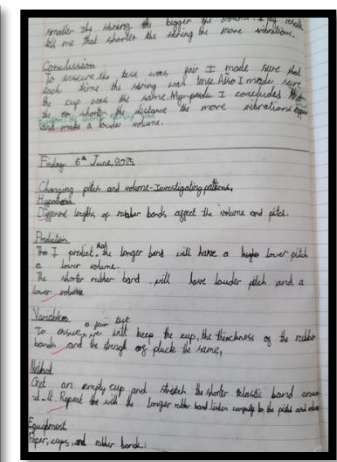 smaller the string, the bigger the volume
tell me that shorter the string the more vibrations.
Conclusion
To ensure the test was fair I made sure that
each time the string was tense. Also I made sure
the cup was the same. My I concluded
the shorter the distance the more vibrations
and make a louder volume.
Friday 6th June, 2025
Changing pitch and volume - Investigating patterns.
Hypothesis
Different lengths of rubber bands affect the volume and pitch.
Prediction
I predict, that the longer band will have a lower pitch
a lower volume.
The shorter rubber band will have louder pitch and a
lower volume
Variables
To ensure a fair test we will keep the cup, the thickness of the rubber
bands and the strength of pluck the same,
Method
Get an empty cup and stretch the shorter elastic band
it. Repeat the with the longer rubber band listen carefully to the pitch and
Equipment
Paper, cups, and rubber bands.